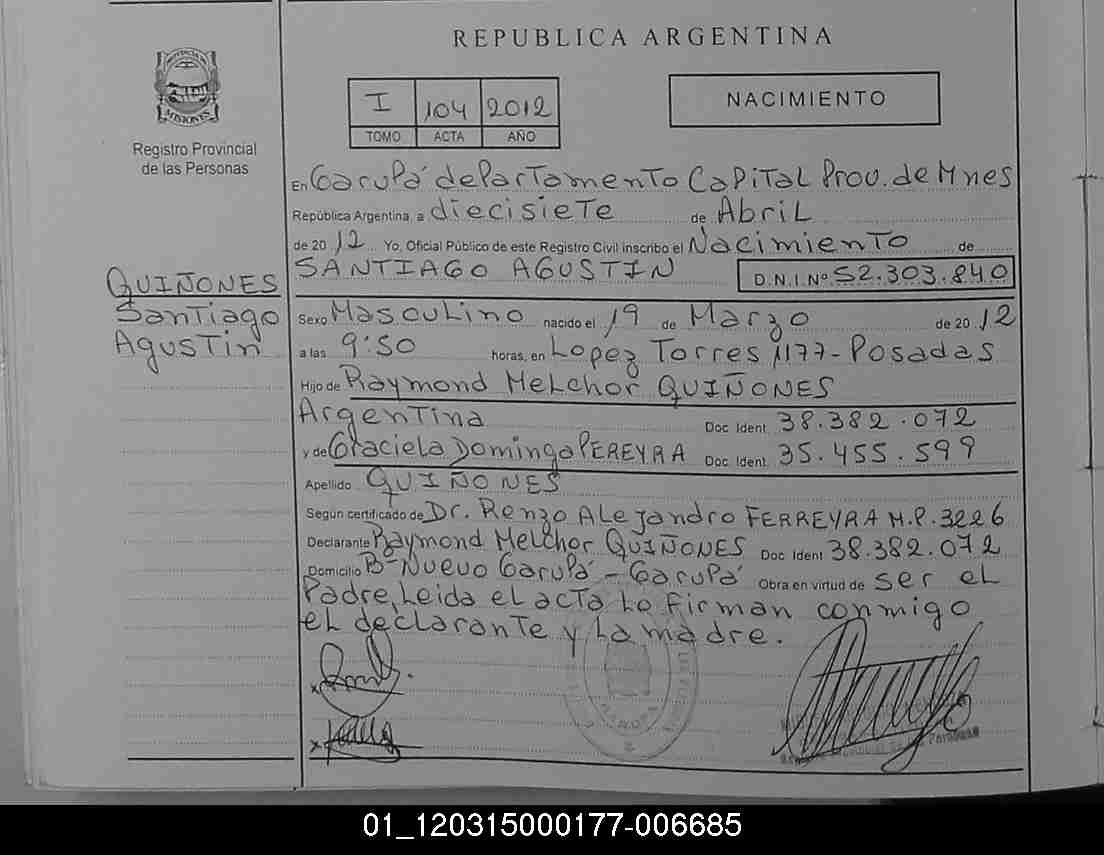 REPUBLICA ARGENTINA
PROVINCIA DE
MISIONES
Registro Provincial
de las Personas
I 104 2012
TOMO ACTA AÑO
NACIMIENTO
En Garupá departamento Capital Prov. de Mnes
República Argentina, a diecisiete de Abril
de 2012 Yo, Oficial Público de este Registro Civil inscribo el Nacimiento de
SANTIAGO AGUSTIN D.N.I.Nº 52.303.840
QUIÑONES
Santiago
Agustin
Sexo Masculino nacido el 19 de Marzo de 2012
a las 9:50 horas, en Lopez Torres 1177-Posadas
Hijo de Raymond Melchor QUIÑONES
Argentina Doc Ident. 38.382.072
y de Graciela Dominga PEREYRA Doc Ident. 35.455.599
Apellido QUIÑONES
Según certificado de Dr. Renzo Alejandro FERREYRA M.P. 3226
Declarante Raymond Melchor QUIÑONES Doc Ident 38.382.072
Domicilio Bº Nuevo Garupá - Garupá Obra en virtud de ser el
Padre, Leida el acta Lo firman conmigo
el declarante y La madre.
01_120315000177-006685